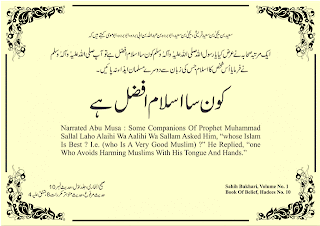 ایک مرتبہ صحابہ نے عرض کیا یا رسول اللہ صلی اللہ علیہ وآلہ وسلم کون سا اسلام افضل ہے تو آپ صلی اللہ علیہ وآلہ وسلم
نے فرمایا اس شخص کا اسلام جس کی زبان سے دوسرے مسلمان ایذا نہ پائیں۔
کون سا اسلام افضل ہے
Narrated Abu Musa : Some Companions Of Prophet Muhammad
Sallal Laho Alaihi Wa Aalihi Wa Sallam Asked Him, “whose Islam
Is Best ? I.e. (who Is A Very Good Muslim) ?” He Replied, “one
Who Avoids Harming Muslims With His Tongue And Hands.”
Sahih Bukhari, Volume No. 1
Book Of Belief, Hadees No. 10